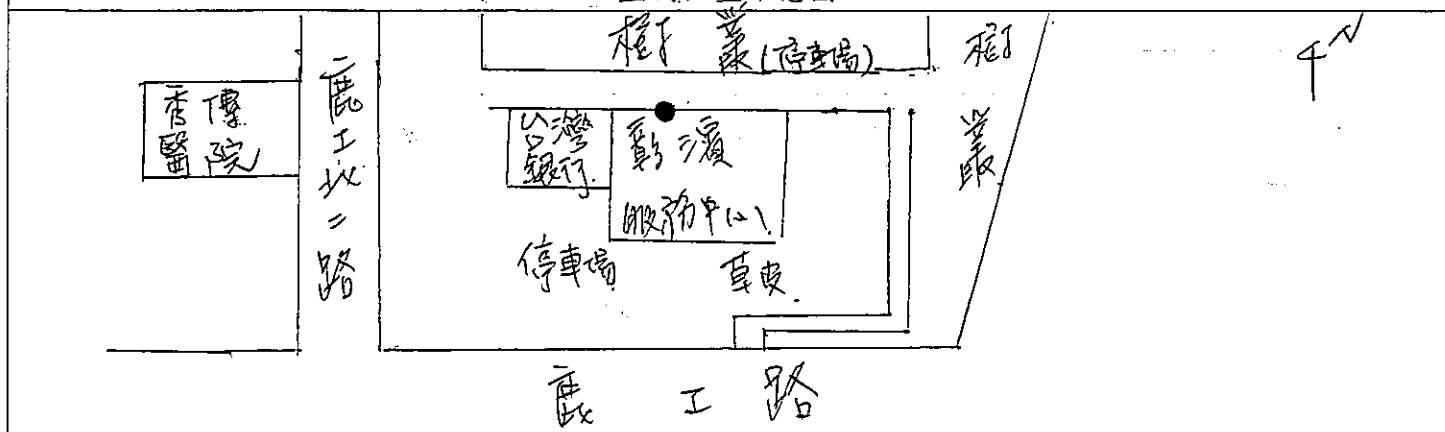 樹叢(停車場)
樹叢
N
秀傳
醫院
鹿工北二路
台灣
銀行
彰濱
服務中心
停車場
草皮
鹿工路